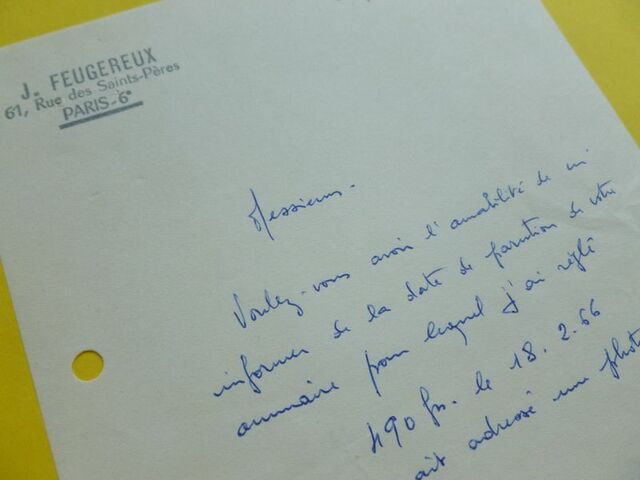 J. FEUGEREUX
61, Rue des Saints-Pères
PARIS-6e
Messieurs.
Voulez-vous avoir l'amabilité de m'
informer de la date de parution de votre
annuaire pour lequel j'ai réglé
490 frs. le 18.2.66
ait adressé une photo